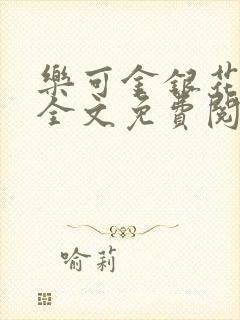 樂可金銀花
全文免費閱
喻莉